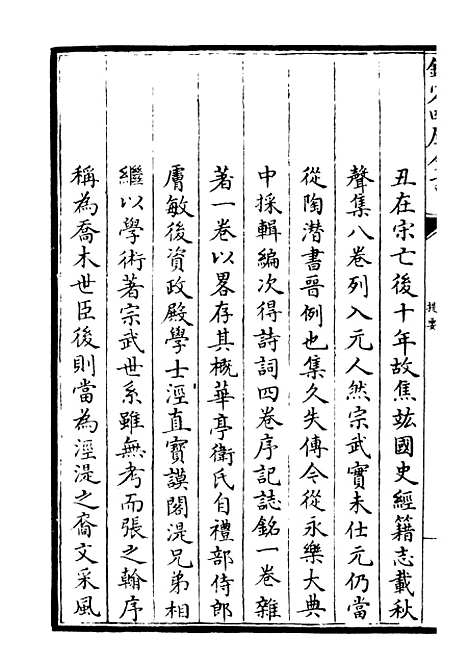 丑在宋亡後十年故焦竑國史經籍志載秋
聲集八卷列入元人然宗武實未仕元仍當
從陶潛書晉例也集久失傳今從永樂大典
中採輯編次得詩詞四卷序記誌銘一卷雜
著一卷以畧存其概華亭衛氏自禮部侍郎
膚敏後資政殿學士涇直寶謨閣湜兄弟相
繼以學術著宗武世系雖無考而張之翰序
稱為喬木世臣後則當為涇湜之裔文采風
提要